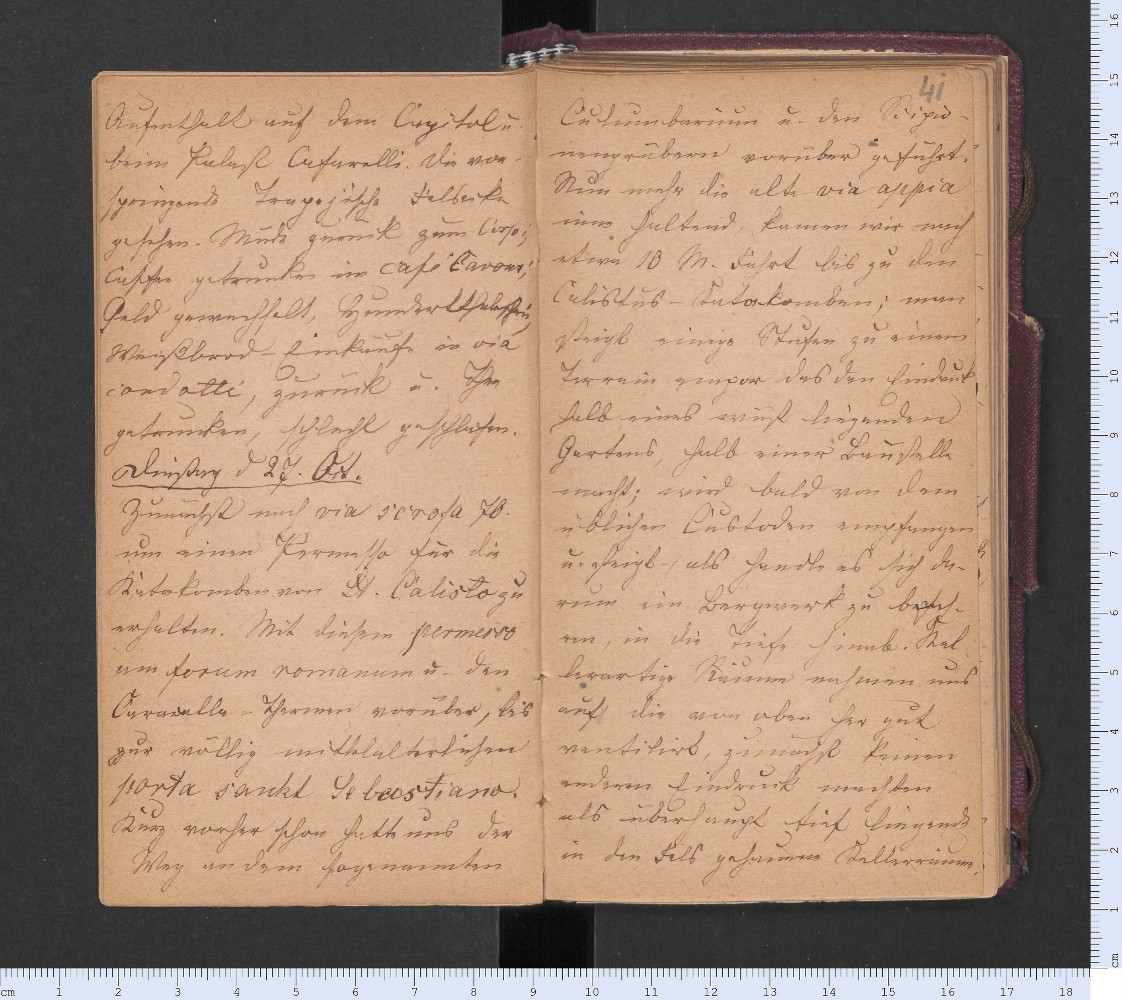 Aufenthalt auf dem Capitol u.
beim Palast Cafarelli. Die vor-
springende Trapejische Felsecke
gesehen. Müde zurück zum Corso;
Caffee getrunken im café Cavour;
Geld gewechselt,
Weißbrod-Einkäufe in via
condotti, zurück u. Thee
getrunken, schlecht geschlafen.
Dinstag d 27. Oct.
Zunächst nach via scrofa 70.
um einen Permesso für die
Katakomben von St. Calisto zu
erhalten. Mit diesem permesso
am forum romanum u. den
Caracalla-Thermen vorüber, bis
zur völlig mittelalterlichen
porta sankt Sebastiano.
Kurz vorher schon hatte uns der
Weg an dem sogenannten
41
Columbarium u. den Scipio-
nengräbern vorüber geführt.
Nun mehr die alte via appia
inne haltend, kamen wir nach
etwa 10 M. Fahrt bis zu den
Calistus-Katakomben; man
steigt einige Stufen zu einem
Terrain empor das den Eindruck
halb eines wüst liegenden
Gartens, halb einer Baustelle
macht; wird bald von dem
üblichen Custoden empfangen
u. steigt, als handle es sich da-
rum ein Bergwerk zu befah-
ren, in die Tiefe hinab. Kel-
lerartige Räume nahmen uns
auf die von oben her gut
ventilirt, zunächst keinen
anderen Eindruck machten
als überhaupt tief liegende
in den Fels gehauene Kellerräume.